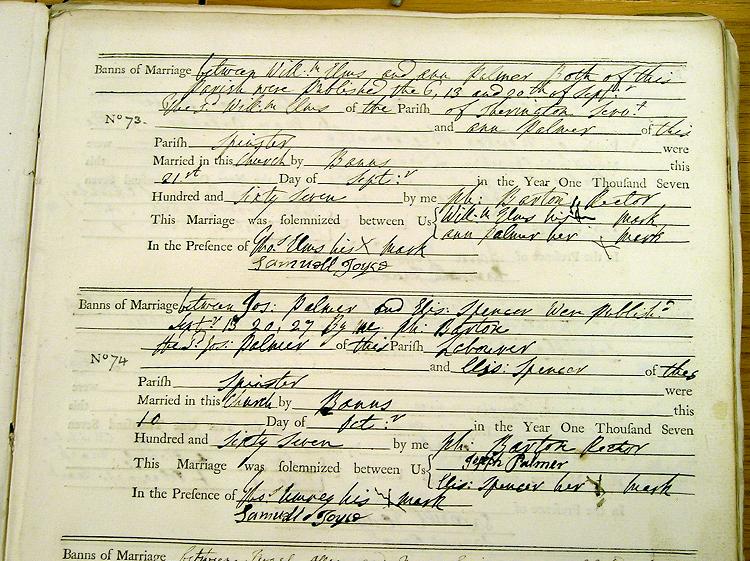 Banns of Marriage between Will:m Elms and ann Palmer Both of this
Parish were Published the 6, 13 and 20th of Sept:r
The sd. Will:m Elms of the Parish of Sherington Serv:t
No 73. and ann Palmer of this
Parish Spinster were
Married in this Church by Banns this
21st Day of Sept:r in the Year One Thousand Seven
Hundred and Sixty Seven by me Ph: Barton Rector
This Marriage was solemnized between Us Will:m Elms his X mark
ann Palmer her X mark
In the Presence of Tho:s Elms his X mark
Samuell Joyce
Banns of Marriage between Jos: Palmer and Elis: Spencer Were Publish:d
Sept:r 13 20, 27 By me Ph: Barton
No 74 the sd. Jos: Palmer of this Parish Labourer
and Elis: Spencer of this
Parish Spinster were
Married in this Church by Banns this
10 Day of Oct:r in the Year One Thousand Seven
Hundred and Sixty Seven by me Ph: Barton Rector
This Marriage was solemnized between Us Joseph Palmer
Elis: Spencer her X mark
In the Presence of his X mark
Samuell Joyce
Banns of Marriage between